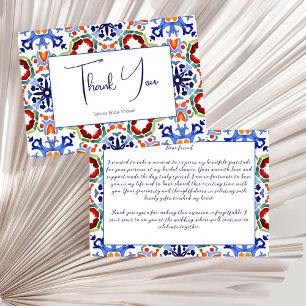 Thank You
Bridal Shower
Dear friend
I wanted to take a moment to express my heartfelt gratitude
for your presence at my bridal shower. Your warmth, love and
support made the day truly special. I am so fortunate to have
you in my life and to have shared this exciting time with
you. Your generosity and thoughtfulness in selecting such
lovely gifts touched my heart.
Thank you again for making this occasion unforgettable. I
can't wait to see you at the wedding where we'll continue to
celebrate together.